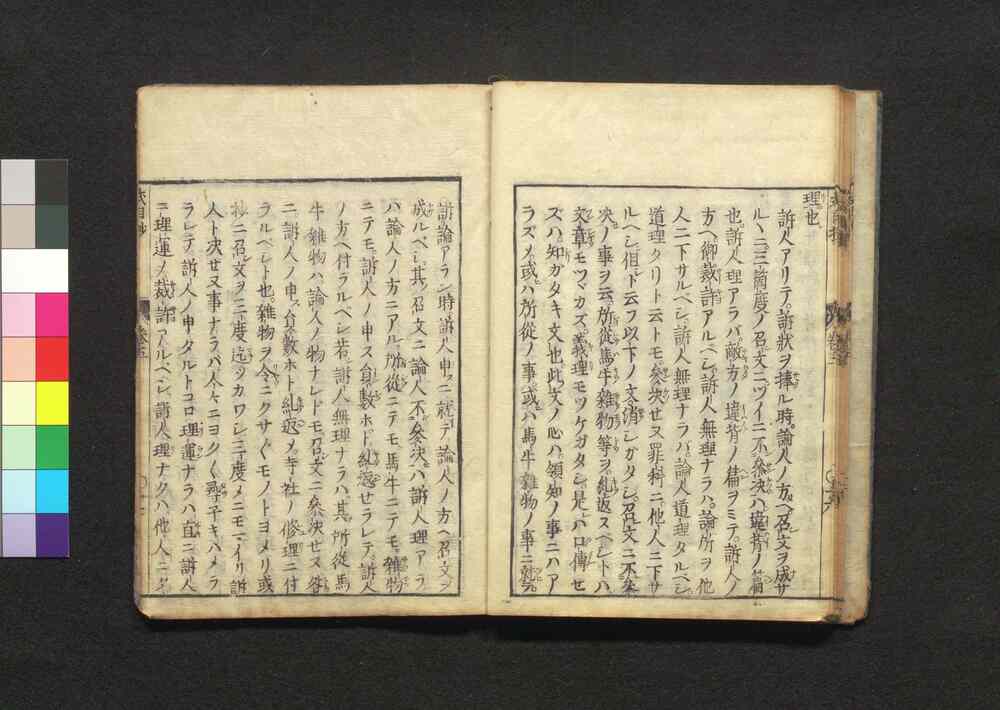 理也
訴人アリテ訴状ヲ捧ル時論人ノ方ヘ召文ヲ成サ
ルヽニ三箇度ノ召文ニツイニ不參决ハ違背ノ篇
也訴人理アラバ敵方ノ違背ノ篇ヲミテ訴人ノ
方ヘ御裁許アルベシ訴人無理ナラハ論所ヲ他
人ニ下サルベシ訴人無理ナラバ論人道理タルベシ
道理タリト云トモ參决セヌ罪科ニ他人ニ下サ
ルベシ但ト云フ以下ノ文消シガタシ召文ニ不參
决ノ事ヲ云所從馬牛雜物等ヲ糺返スベシトハ
文章モツヾカズ義理モツケガタシ是ハ口傳セ
ズハ知ガタキ文也此文ノ心ハ領知ノ事ニハア
ラズメ或ハ所從ノ事或ハ馬牛雜物ノ事ニ就テ
訴論アラン時訴人申ニ就テ論人ノ方ヘ召文ヲ
成ルベシ其召文ニ論人不參决ハ訴人理アラ
バ論人ノ方ニアル所從ニテモ馬牛ニテモ雜物
ニテモ訴人ノ申ス員數ホド糺返セラレテ訴人
ノ方ヘ付ラルベシ若訴人無理ナラハ其所從馬
牛雜物ハ論人ノ物ナレドモ召文ニ參决セヌ咎
ニ訴人ノ申ス員數ホト糺返メ寺社ノ修理ニ付
ラルベシト也雜物ヲ今ニクサ〱モノトヨメリ或
抄ニ召文ヲ三度迄ツカワシ三度メニモマイリ訴
人ト决せヌ事ナラバ人々ニヨク〱尋子キハメラ
ラレテ訴人ノ申タルトコロ理運ナラハ直ニ訴人
ニ理運ノ裁許アルベシ訴人理ナクハ他人ニタ